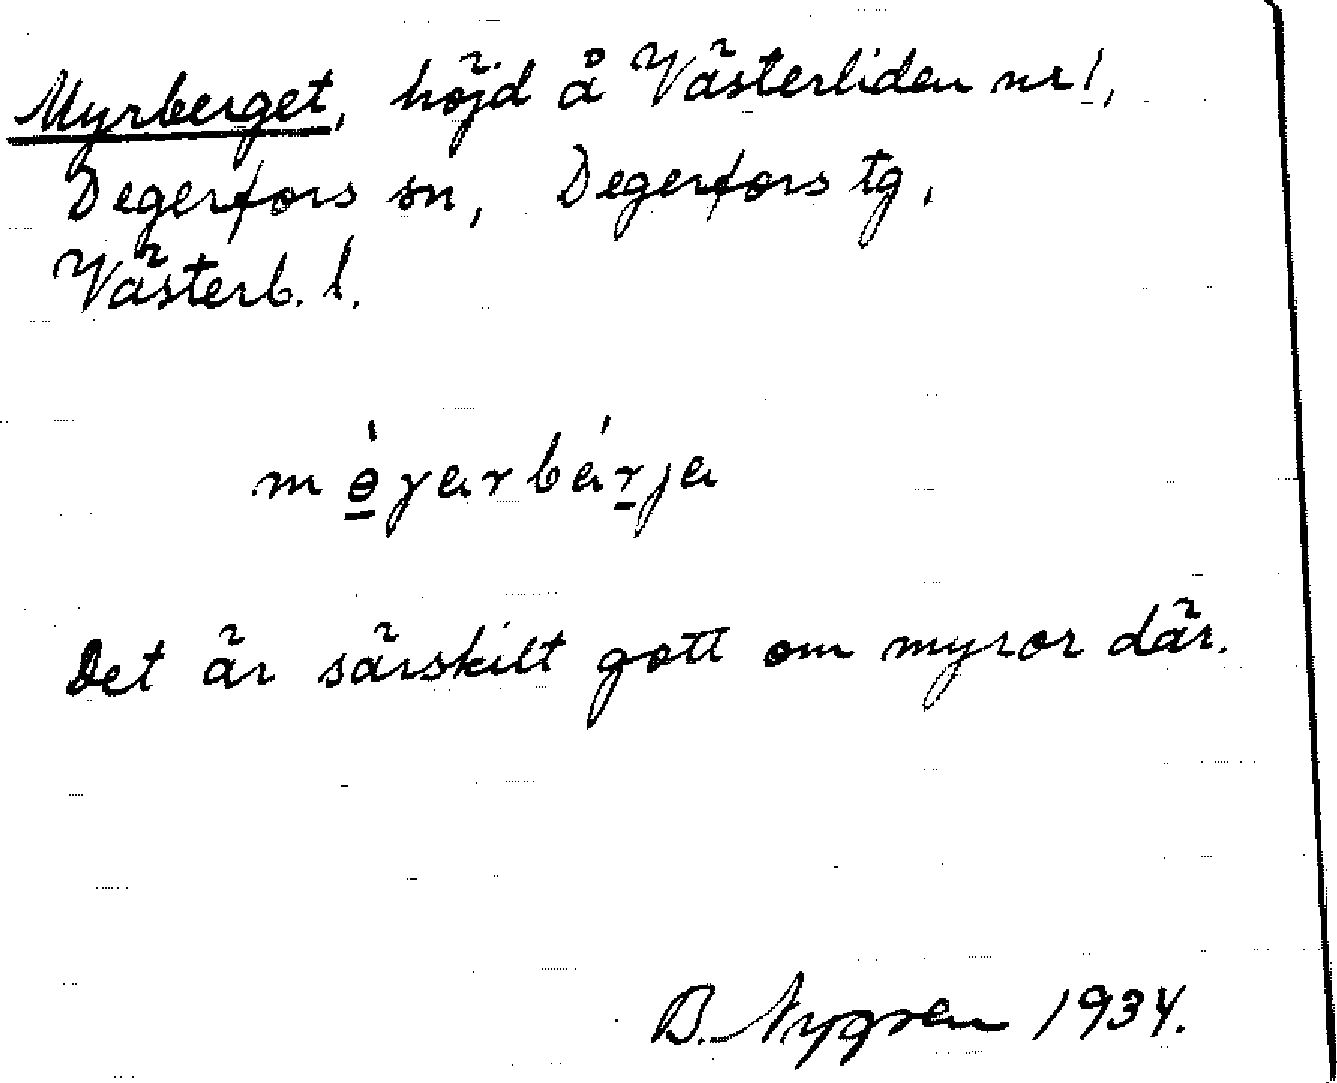 Myrberget, höjd å Västerliden nr 1,
Degerfors sn, Degerfors tg,
Västerb. l.
mɵ̠́yarbá́r̠ja
Det är särskilt gott om myror där.
B. Nygren 1934.